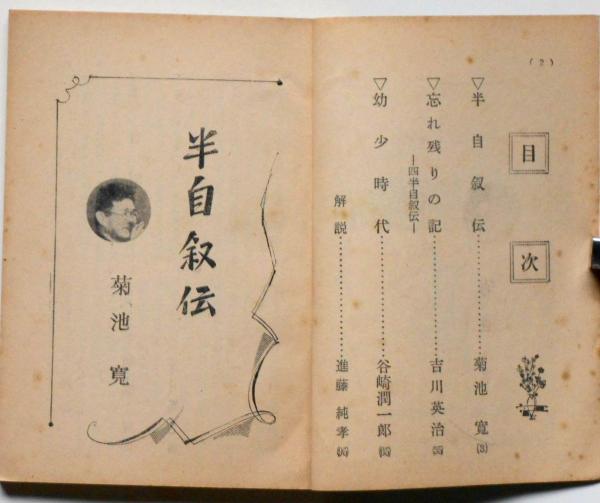 (2)
目次
▽半自叙伝……………………菊池寛(3)
▽忘れ残りの記……………………吉川英治
―四半自叙伝―
▽幼少時代……………………谷崎潤一郎
解説……………………進藤純孝
半自叙伝
菊池寛